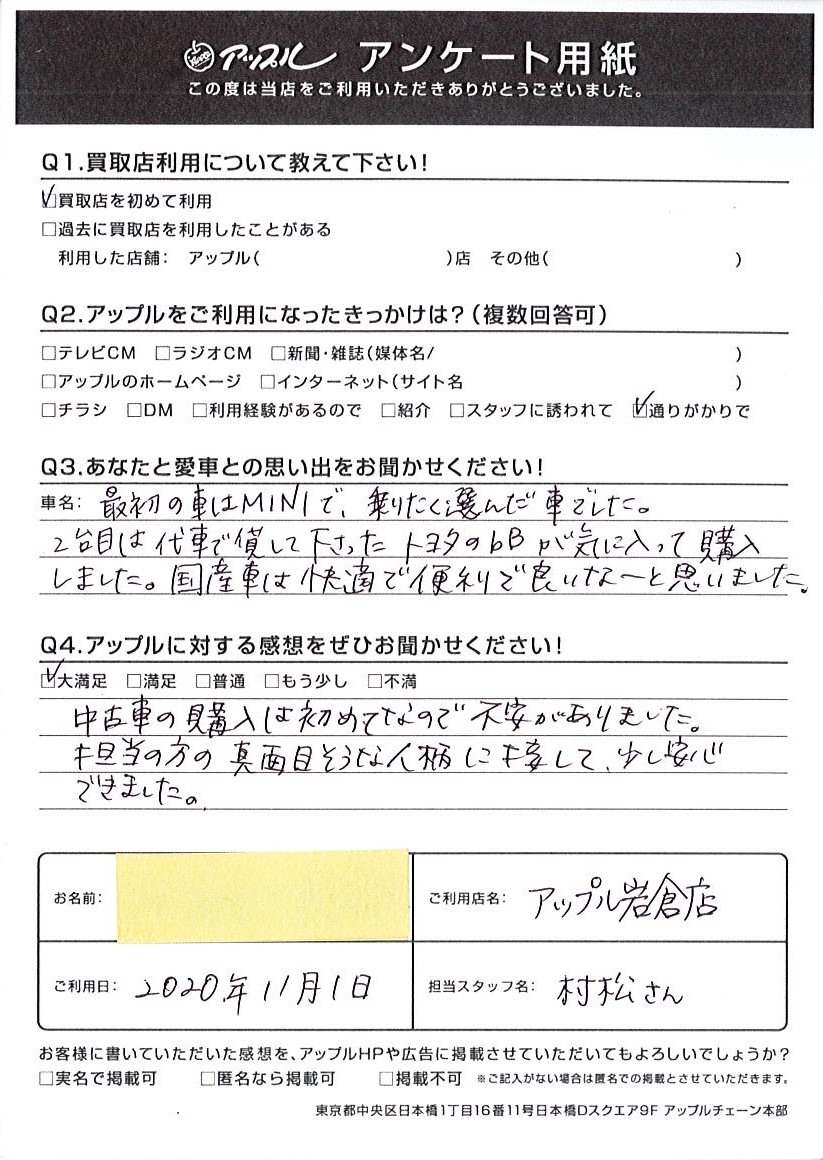 アップル アンケート用紙
この度は当店をご利用いただきありがとうございました。
Q1.買取店利用について教えて下さい!
☑買取店を初めて利用
□過去に買取店を利用したことがある
利用した店舗: アップル( )店 その他( )
Q2.アップルをご利用になったきっかけは?(複数回答可)
□テレビCM □ラジオCM □新聞・雑誌(媒体名/ )
□アップルのホームページ □インターネット(サイト名 )
□チラシ □DM □利用経験があるので □紹介 □スタッフに誘われて ☑通りがかりで
Q3.あなたと愛車との思い出をお聞かせください!
車名: 最初の車はMINIで、乗りたく選んだ車でした。
2台目は代車で貸して下さったトヨタのbBが気に入って購入
しました。国産車は快適で便利で良いな〜と思いました。
Q4.アップルに対する感想をぜひお聞かせください!
☑大満足 □満足 □普通 □もう少し □不満
中古車の購入は初めてなので不安がありました。
担当の方の真面目そうな人柄に接して、少し安心
できました。
お名前:
ご利用店名: アップル岩倉店
ご利用日: 2020年11月1日
担当スタッフ名: 村松さん
お客様に書いていただいた感想を、アップルHPや広告に掲載させていただいてもよろしいでしょうか?
□実名で掲載可 □匿名なら掲載可 □掲載不可 ※ご記入がない場合は匿名での掲載とさせていただきます。
東京都中央区日本橋1丁目16番11号日本橋Dスクエア9F アップルチェーン本部